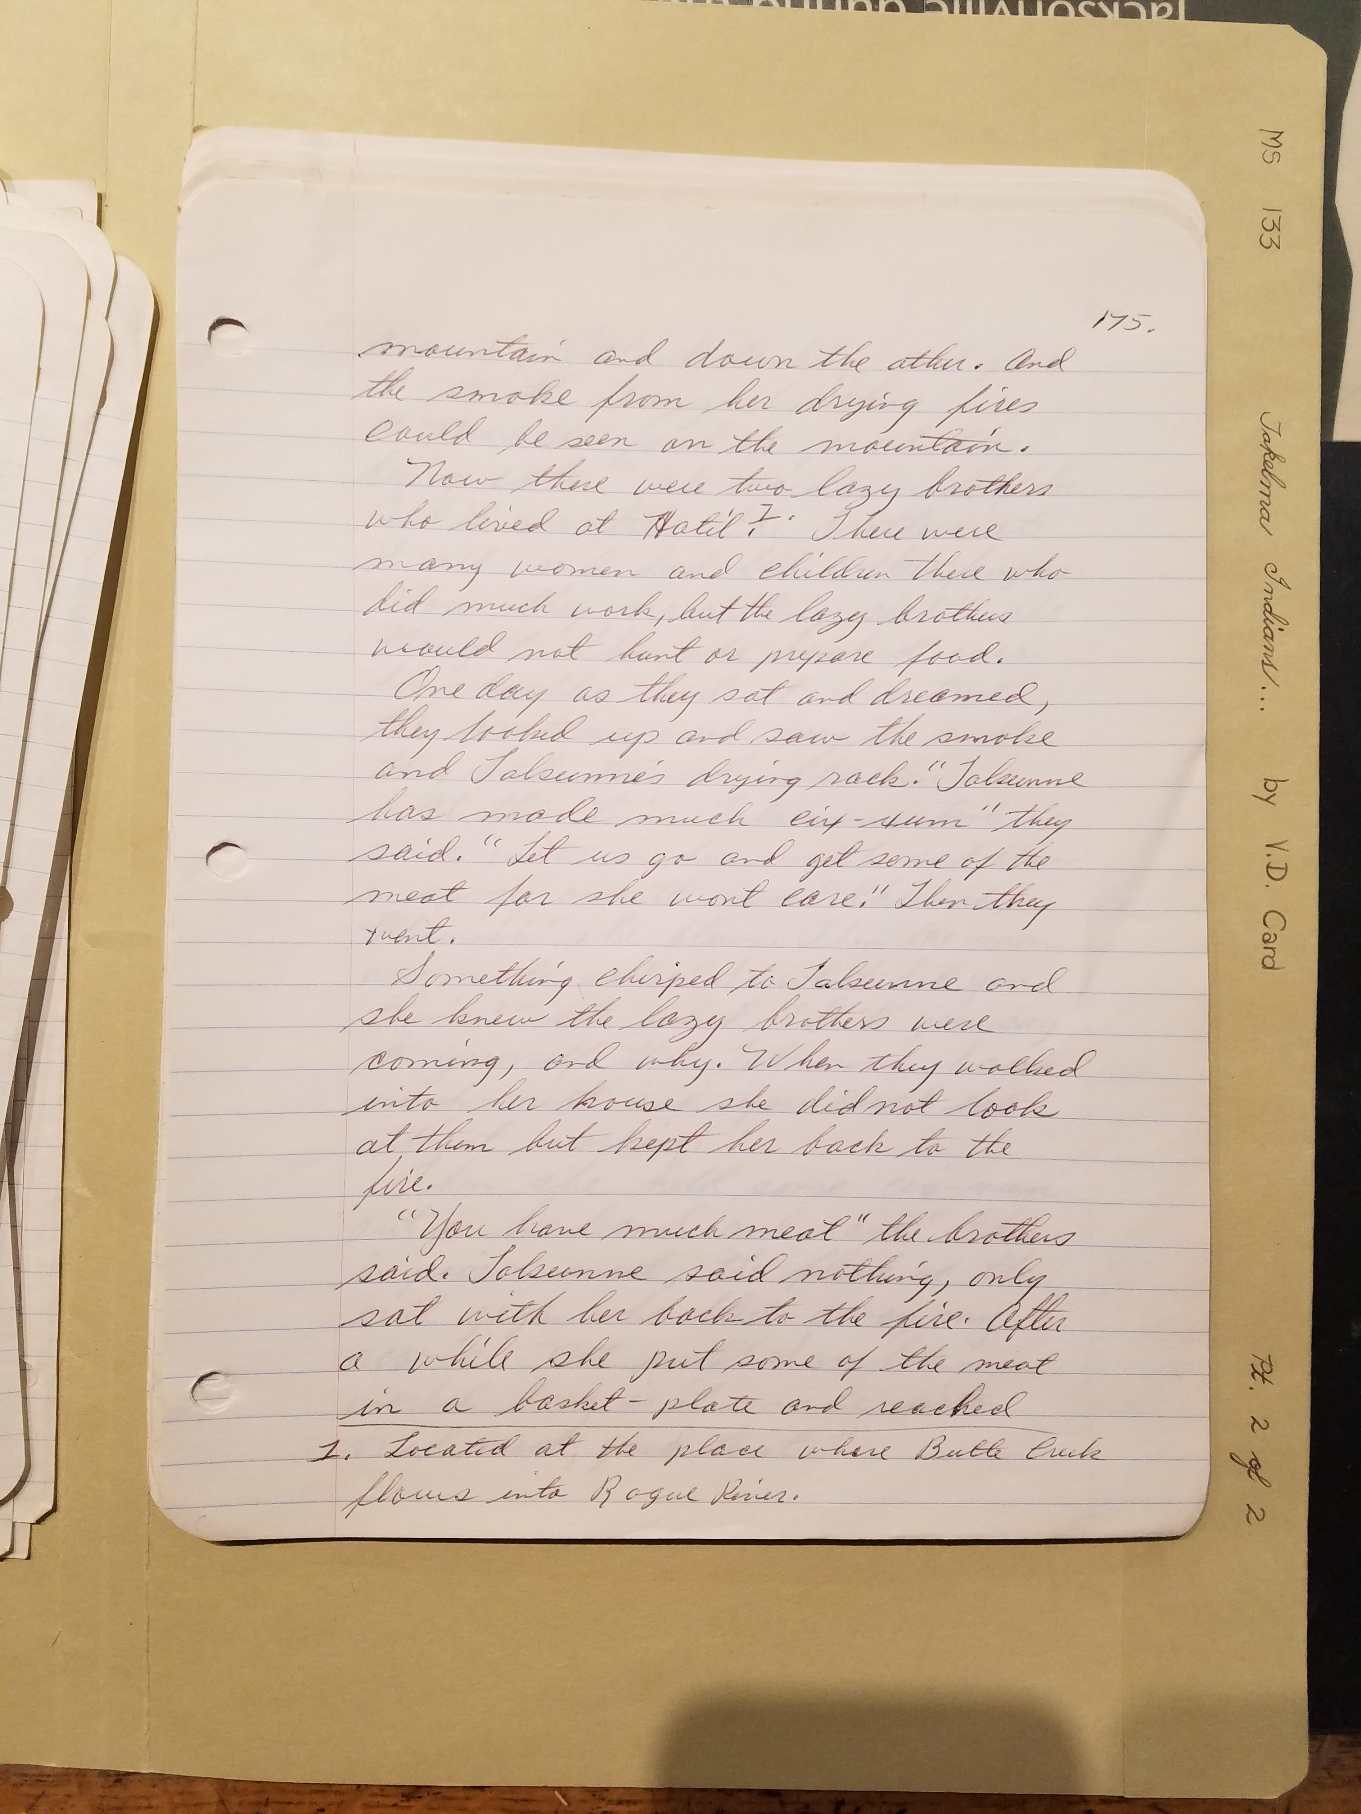 Jacksonville during
175.
mountain and down the other. And
the smoke from her drying fires
could be seen on the mountain.
Now there were two lazy brothers
who lived at Hatil. 1. There were
many women and children there who
did much work, but the lazy brothers
would not hunt or prepare food.
One day as they sat and dreamed,
they looked up and saw the smoke
and Talsunne's drying rack. "Talsunne
has made much cix-xum" they
said. "Let us go and get some of the
meat for she wont care." Then they
went.
Something chirped to Talsunne and
she knew the lazy brothers were
coming, and why. When they walked
into her house she did not look
at them but kept her back to the
fire.
"You have much meat" the brothers
said. Talsunne said nothing, only
sat with her back to the fire. After
a while she put some of the meat
in a basket-plate and reached
1. Located at the place where Butte Creek
flows into Rogue River.
MS 133 Takelma Indians... by V.D. Card Pt. 2 of 2